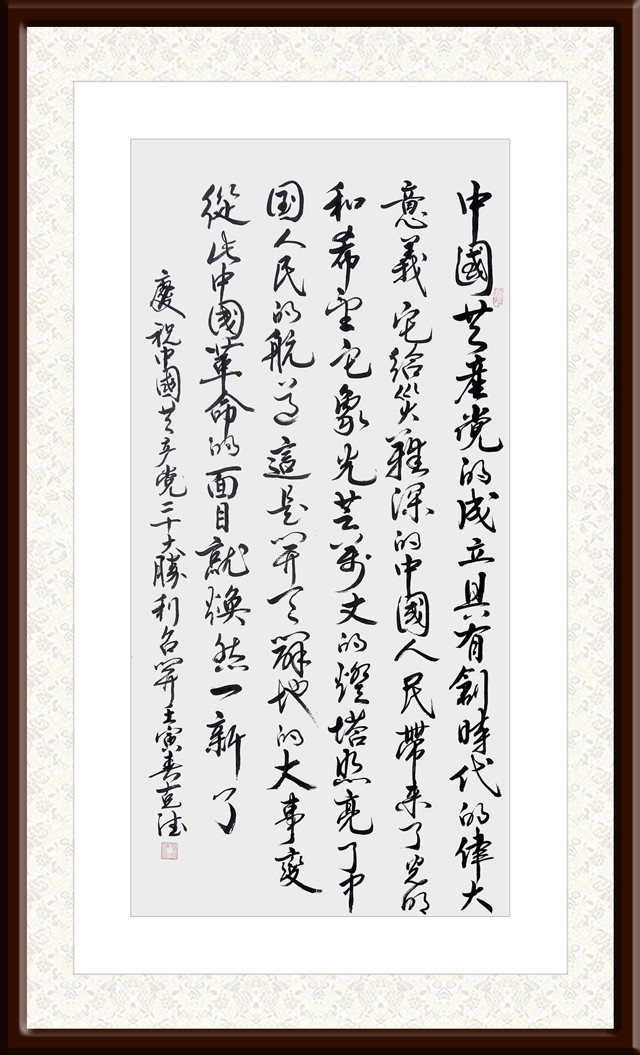 中國共產党的成立具有創時代的偉大
意義它給災難深的中國人民帶来了光明
和希望它象光芒萬丈的燈塔照亮了中
国人民的航道這是開天闢地的大事變
從此中國革命的面目就煥然一新了
慶祝中國共产党二十大勝利召開壬寅春克